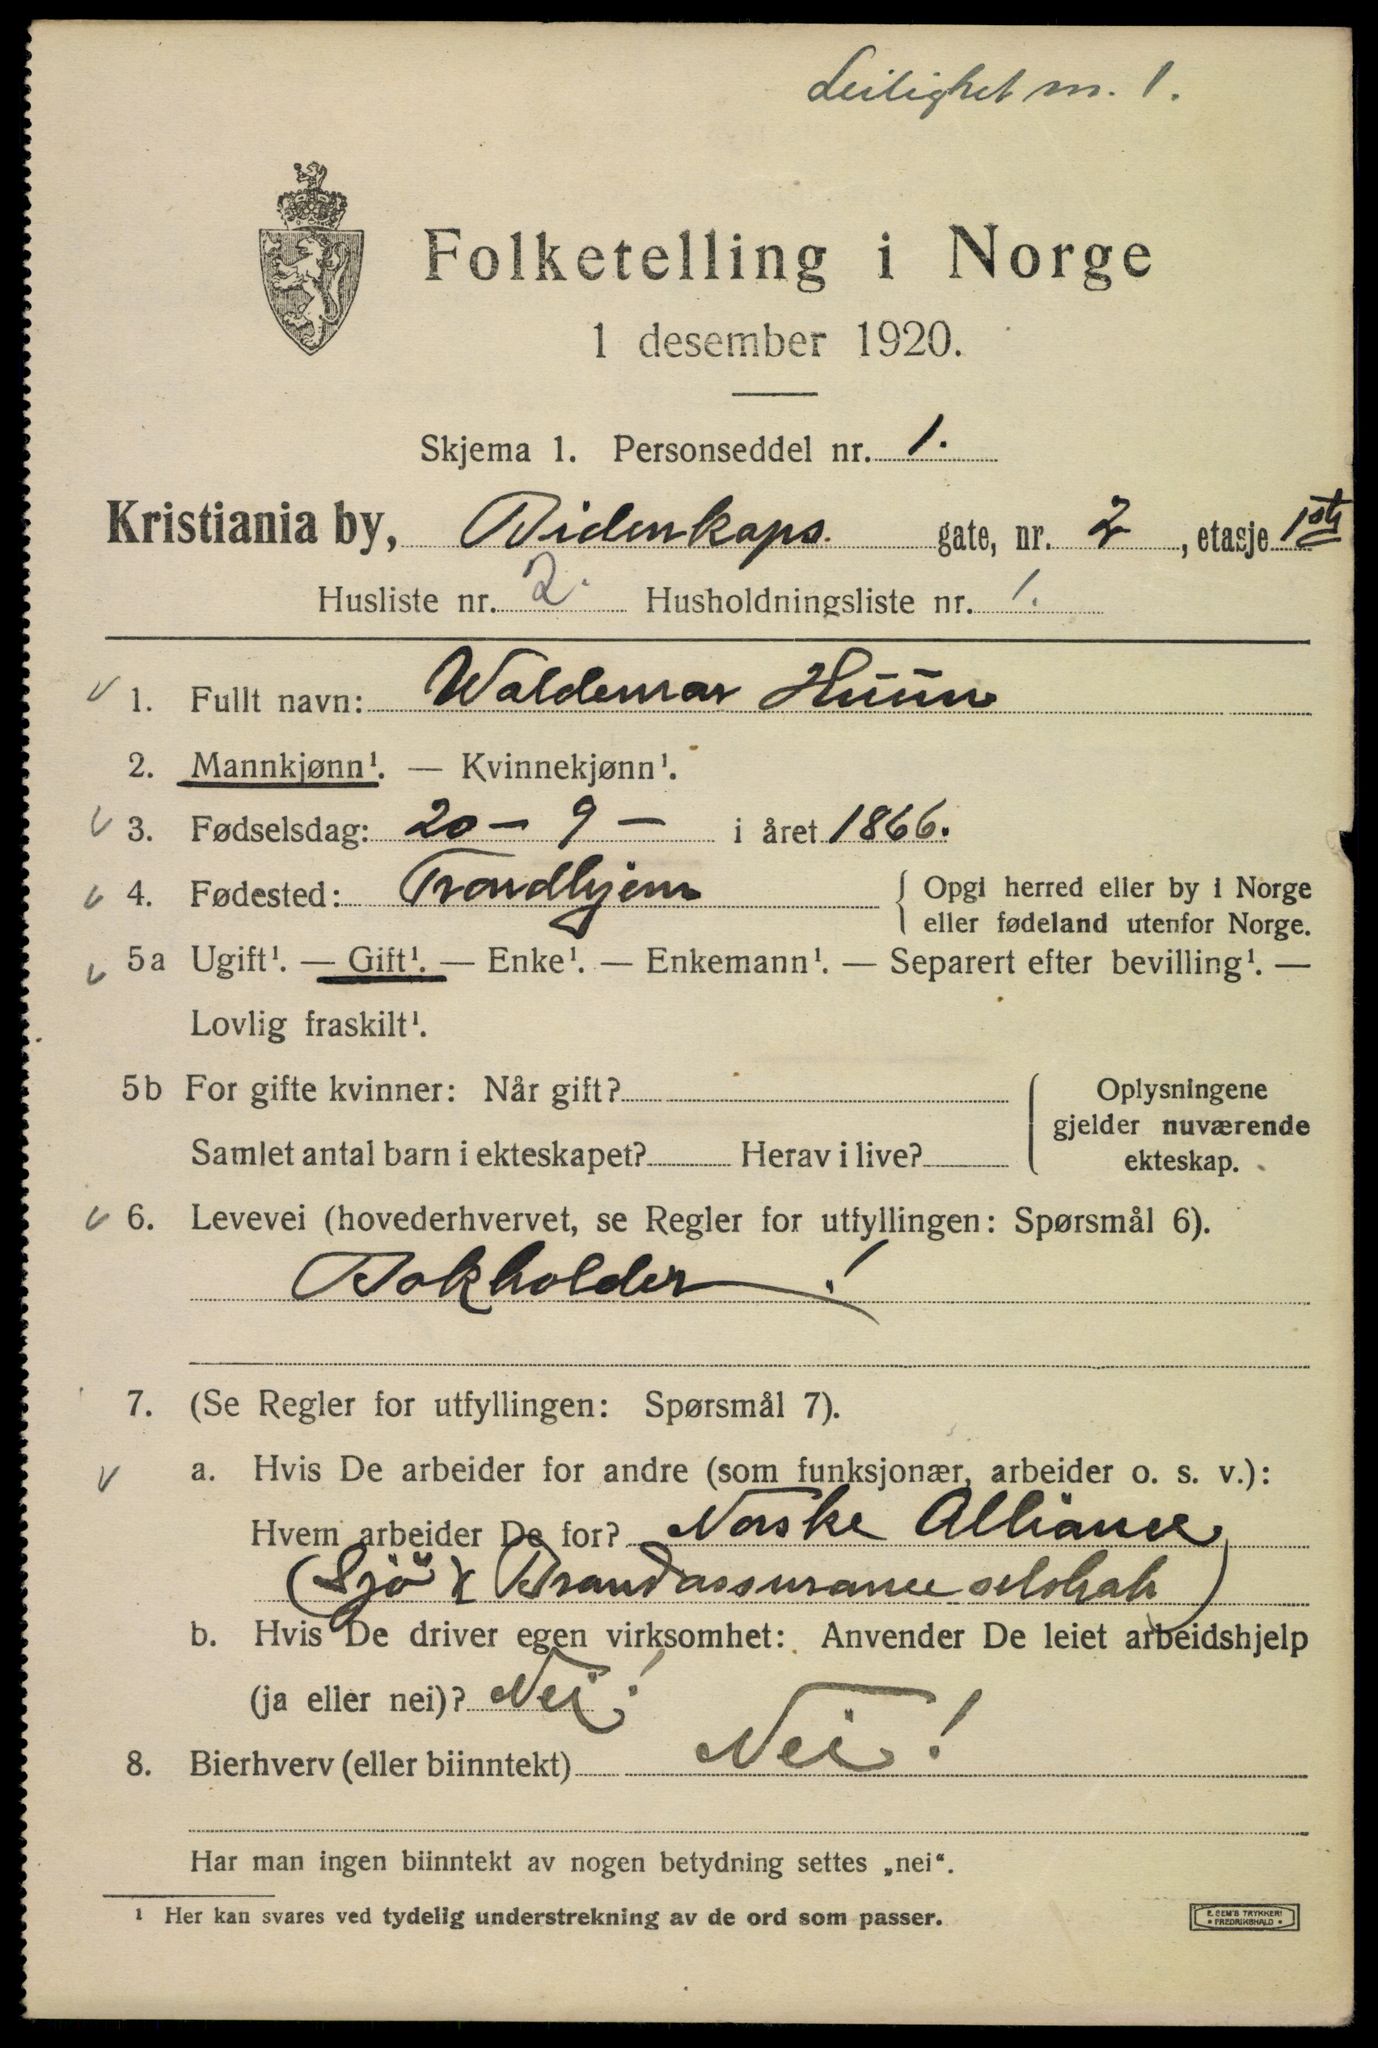 Leilighet nr. 1.
Folketelling i Norge
1 desember 1920.
Skjema 1. Personseddel nr. 1.
Kristiania by, Bidenkaps gate, nr. 2, etasje 1ste
Husliste nr. 2. Husholdningsliste nr. 1.
1. Fullt navn: Waldemar Huun
2. Mannkjønn¹. — Kvinnekjønn¹.
3. Fødselsdag: 20 – 9 – i året 1866.
4. Fødested: Trondhjem { Opgi herred eller by i Norge
eller fødeland utenfor Norge.
5a Ugift¹. — Gift¹. — Enke¹. — Enkemann¹. — Separert efter bevilling¹. —
Lovlig fraskilt¹.
5b For gifte kvinner: Når gift?
Samlet antal barn i ekteskapet? Herav i live?
Oplysningene
gjelder nuværende
ekteskap.
6. Levevei (hovederhvervet, se Regler for utfyllingen: Spørsmål 6).
Bokholder!
7. (Se Regler for utfyllingen: Spørsmål 7).
a. Hvis De arbeider for andre (som funksjonær, arbeider o. s. v.):
Hvem arbeider De for? Norske Alliance
(Sjö & Brandassurance selskab)
b. Hvis De driver egen virksomhet: Anvender De leiet arbeidshjelp
(ja eller nei)? Nei!
8. Bierhverv (eller biinntekt) Nei!
Har man ingen biinntekt av nogen betydning settes „nei“.
¹ Her kan svares ved tydelig understrekning av de ord som passer.
E. SEM'S TRYKKERI
• FREDRIKSHALD •